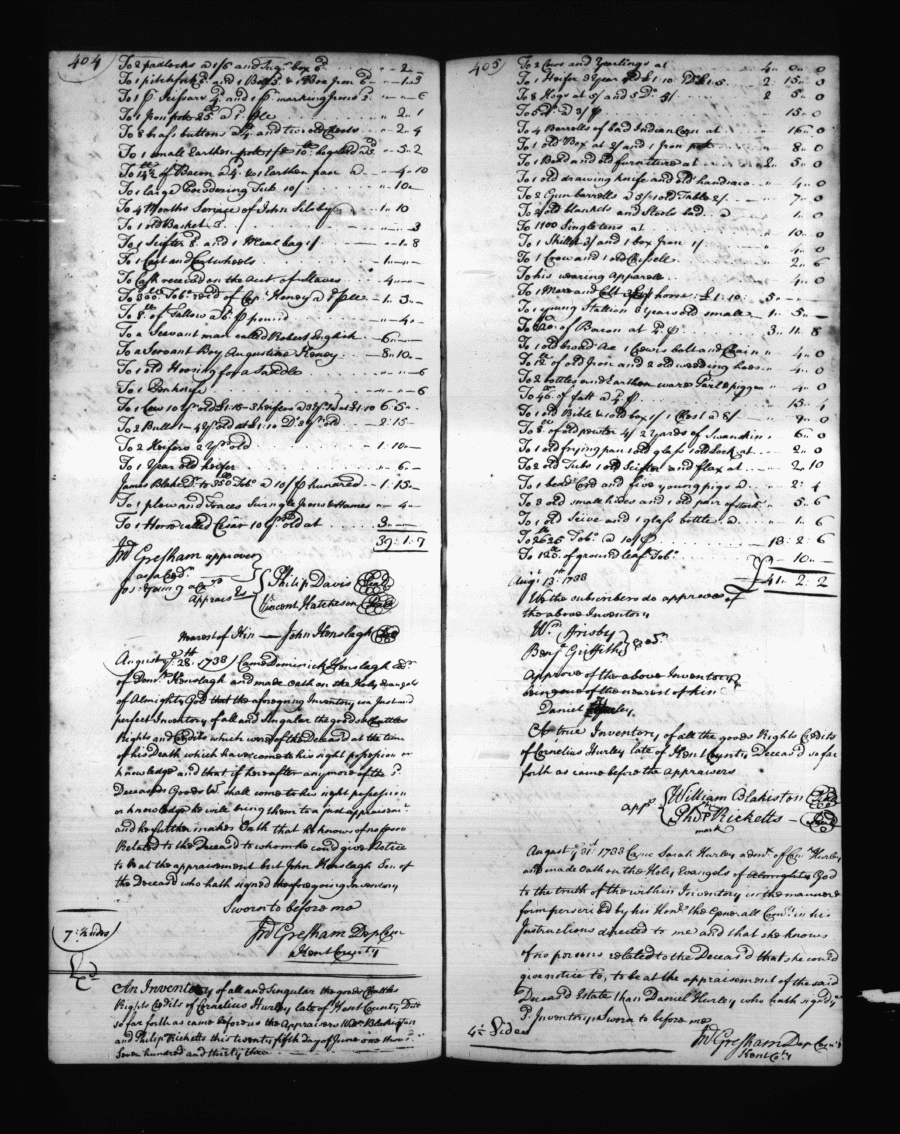 404
To 2 padlocks a 1/6 and Sugr. box 6d .. 2 ..
To 1 pitchfork and 1 & 1 Box Iron 6d .. 1 ..
To 1 pr Scissars and 1 pr marking Irons
To 1 Iron pott a .. 2 .. 1
To 8 brass buttons and two old Chests .. 2 .. 4
To 1 small Earthen pott .. 5 .. 2
of Bacon a & 1 Earthen pan a .. 4 .. 10
To 1 large Powdering Tub 10/ .. 10 ..
To 4 Months Service of John Silby .. 1 .. 10
To 1 old Basket .. 3
To 1 Seifter 8d. and 1 Meal bag 1/ .. 1 .. 8
To 1 Cart and Cartwheels .. 1 ..
To Cash received on the Acct. of Slaves .. 4 ..
To 300 Tobo. recd of Capt. Kenney a .. 1 .. 3 ..
To 8 lb of Tallow a 6d. p pound .. 4 ..
To a Servant man called Robert English 6 ..
To a Servant Boy Augustine Keney .. 8 .. 10 ..
To 1 old Housing for a Saddle .. 6
To 1 Penknife .. 6
To 1 Cow 10 Yrs old £1:15 3 heifers a 3 Yrs old at £1:10 6 .. 5 ..
To 2 Bulls 1 4 Yrs old at £1:10 Do 3 Yrs old .. 2 : 15 ..
To 2 Heifers 2 Yrs old .. 1 : 10 ..
To 1 Year old heifer .. 6 ..
James Blake Dr. to 350 Tobo a 10/ p hundred .. 1 : 15 ..
To 1 plow and Traces Swingle Irons & Hames .. 4 ..
To 1 Horse called Cesar 10 Yrs old at 3 ..
39 : 1 : 7
Jno Gresham approver
Jos: Young
Appraisrs
Philip Davis Seal
Vincent Hatcheson Seal
Nearest of Kin John Henslagh Seal
August ye 28th. 1738 Came Dominick Henslagh
of Domk. Henslagh and made oath on the Holy Evangels
of Almighty God that the aforegoing Inventory is a Just and
perfect Inventory of all and Singular the goods Chattles
Rights and Credits which were of the Deceasd at the time
of his Death which have come to his sight possession or
knowledge and that if hereafter any more of the sd
Deceaseds Goods &c shall come to his sight possession
or knowledge he will bring them to a just appraisemt
and he further makes Oath that he knows of no person
Related to the Deceasd to whom he could give Notice
to be at the appraisement but John Henslagh Son of
the Deceasd who hath signed the foregoing Inventory
Sworn to before me
Jno Gresham Dep Com
Kent County
7: Sides
An Inventory of all and Singular the goods Chattles
Rights Credits of Cornelius Hurley late of Kent County Decd
so far forth as came before us the Appraisers Wm. Blakiston
and Philip Ricketts this twenty fifth day of June one thous
Seven hundred and thirty three
405
To 2 Cows and Yearlings at 4 .. 0 .. 0
To 1 Heifer 3 Year old £1:10 2 15 .. 0
To 8 Hogs at 5/ and 5 Do 3/ 2 5 .. 0
To 5 Do. a 3/ p 15 .. 0
To 4 Barrells of bad Indian Corn at 16 .. 0
To 1 old Box at 2/ and 1 Iron pot 8 .. 0
To 1 Bed and old furniture at 2 5 .. 0
To 1 old drawing knife and old handsaw .. 4 .. 0
To 2 Gun barrells a 5/ 1 old Table 2/ .. 7 .. 0
To 2 old blankets and Steols bad .. a 1 .. 0
To 1100 Singletens at 10 .. 0
To 1 Skillet 3/ and 1 box Iron 1/ 4 .. 0
To 1 Crow and 1 old Chissell 2 .. 6
To his wearing Apparell 4 .. 0
To 1 Mare and Colt horse: £1:10: 5 ..
To 1 young Stallion 3 years old small 1 .. 5 ..
of Bacon at 4d. p 3 .. 11 .. 8
To 1 old broad Axe 1 Clevis bolt and Chain .. 4 .. 0
of old Iron and 2 old weeding hoes .. 4 .. 0
To 2 bottles and Earthen ware Parl & piggen .. 4 .. 0
To 40 lb of fatt a 4d p 13 .. 4
To 1 old Bible & 1 old box 1/ 1 Chest a 8/ 9 .. 0
To 8 lb of old pewter 4/ 2 Yards of Swanskin . 6 .. 0
To 1 old frying pan 1 old glass 1 old Lock at 2 .. 0
To 2 old Tubs 1 old Seifter and flax at 2 .. 10
To 1 bedd Cord and five young pigs a 2 : 4
To 3 old small hides and 1 old pair of stock 5 .. 6
To 1 old Seive and 1 glass bottle a 1 .. 6
To 2625 Tobo. a 10/ p 13 : 2 : 6
of ground leaf Tobo. 10 ..
£ 41 .. 2 .. 2
Augt. 13th. 1738
We the subscribers do approve of
the above Inventory
Wm Frisby
Benja Griffith
Approve of the above Inventory
being one of the nearest of kin
Daniel Hurley.
A true Inventory of all the goods Rights Credits
of Cornelius Hurley late of Kent County Deceasd so far
forth as came before the appraisers
apps
William Blakiston Seal
Phil P Ricketts Seal
mark
August ye 31st 1738 Came Sarah Hurley admx. of Corn. Hurley
and made Oath on the Holy Evangels of Almighty God
to the truth of the within Inventory in the manner &
form perscribed by his Honr. the Generall Comry. in his
Instructions directed to me and that she knows
of no persons related to the Deceasd that she could
give notice to, to be at the appraisement of the said
Deceasd Estate than Daniel Hurley who hath signd ye
sd. Inventory Sworn to before me
Jno Gresham Dep Comry
Kent Coty
4: Sides